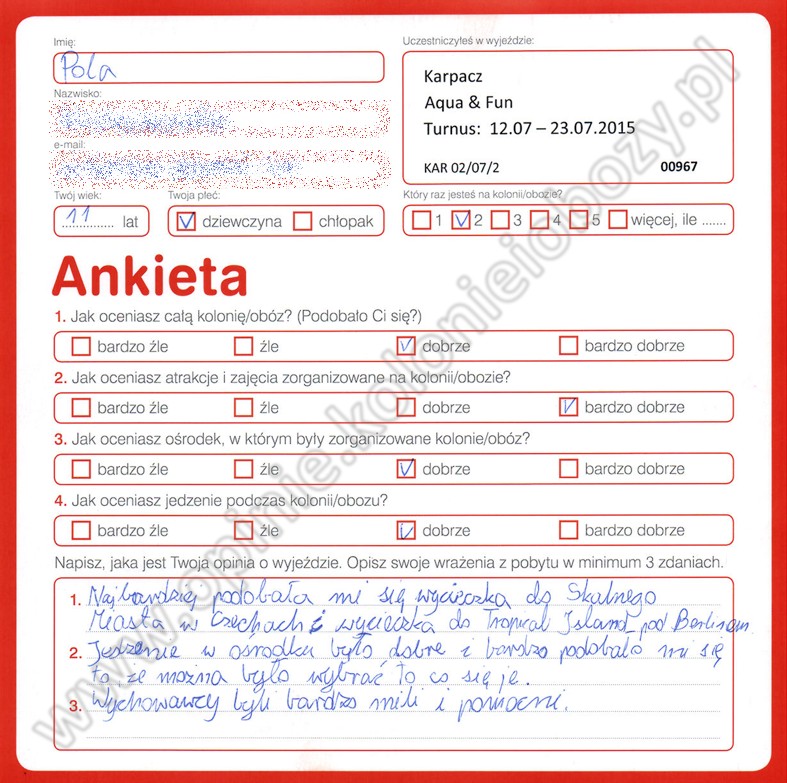 Imię:
Uczestniczyłeś w wyjeździe:
Pola
Karpacz
Aqua & Fun
Turnus: 12.07 – 23.07.2015
KAR 02/07/2 00967
Nazwisko:
e-mail:
Twój wiek:
Twoja płeć:
Który raz jesteś na kolonii/obozie?
11 lat
dziewczyna chłopak
1 2 3 4 5 więcej, ile .......
Ankieta
1. Jak oceniasz całą kolonię/obóz? (Podobało Ci się?)
bardzo źle źle dobrze bardzo dobrze
2. Jak oceniasz atrakcje i zajęcia zorganizowane na kolonii/obozie?
bardzo źle źle dobrze bardzo dobrze
3. Jak oceniasz ośrodek, w którym były zorganizowane kolonie/obóz?
bardzo źle źle dobrze bardzo dobrze
4. Jak oceniasz jedzenie podczas kolonii/obozu?
bardzo źle źle dobrze bardzo dobrze
Napisz, jaka jest Twoja opinia o wyjeździe. Opisz swoje wrażenia z pobytu w minimum 3 zdaniach.
1. Najbardziej podobała mi się wycieczka do Skalnego
Miasta w Czechach i wycieczka do Tropical Island pod Berlinem
2. Jedzenie w ośrodku było dobre i bardzo podobało mi się
to, że można było wybrać to co się je.
3. Wychowawcy byli bardzo mili i pomocni.
www.opinie.kolonieiobozy.pl